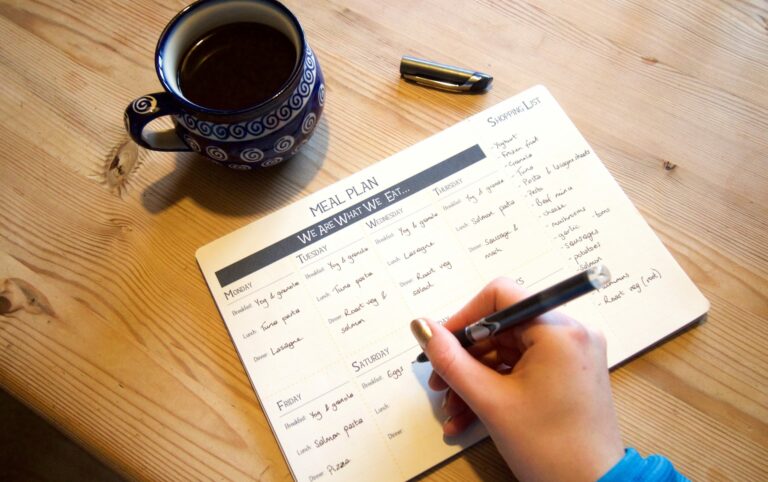 MEAL PLAN
WE ARE WHAT WE EAT...
MONDAY
Breakfast: Yog & granola
Lunch: Tuna pasta
Dinner: Lasagne
TUESDAY
Breakfast: Yog & granola
Lunch: Tuna pasta
Dinner: Roast veg & salmon
WEDNESDAY
Breakfast: Yog & granola
Lunch: Lasagne
Dinner: Roast veg & salad
THURSDAY
Breakfast: Yog & granola
Lunch: Salmon pasta
Dinner: Sausage & mash
FRIDAY
Breakfast: Yog & granola
Lunch: Salmon pasta
Dinner: Pizza
SATURDAY
Breakfast: Eggs
Lunch:
Dinner:
SHOPPING LIST
- Yoghurt
- Frozen fruit
- Granola
- Tuna
- Pasta & lasagne sheets
- Pesto
- Beef mince
- cheese
- mushrooms
- garlic - toms
- sausages
- potatoes
- salmon
- Roast veg (red)